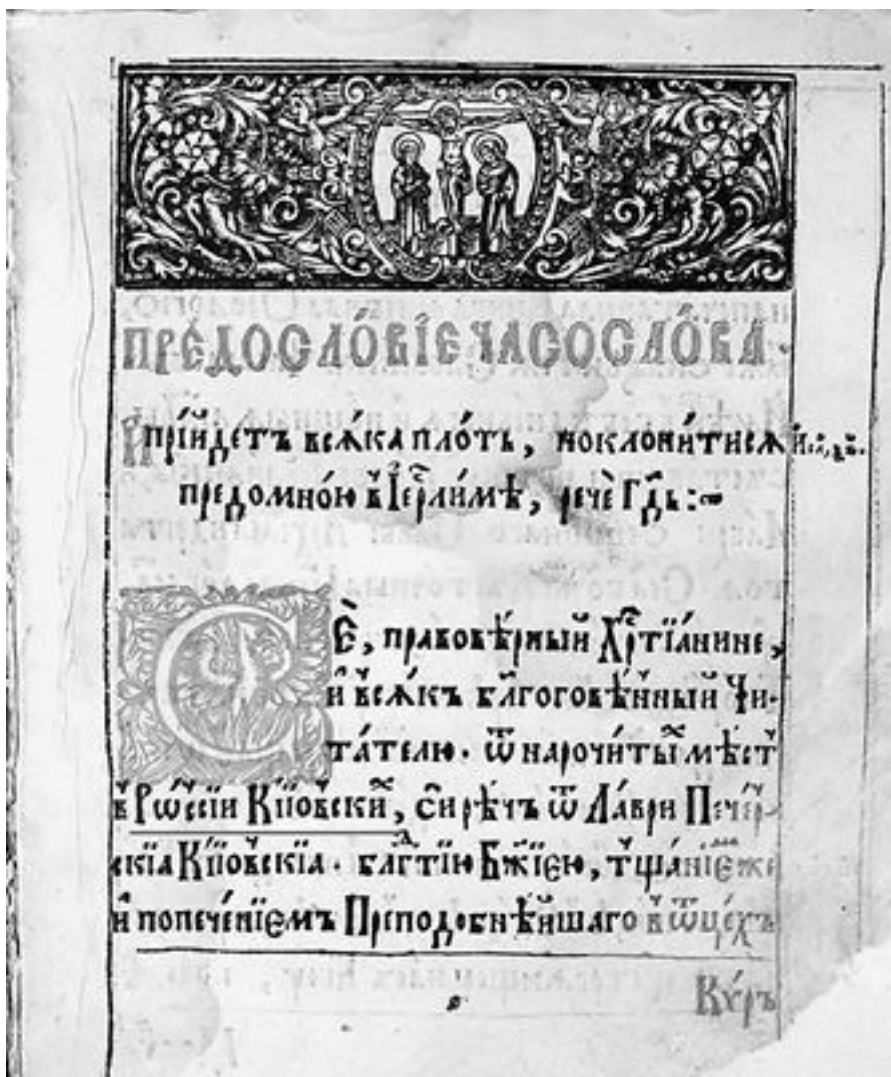 ПРЕДОСЛО́ВІЕ ЧАСОСЛО́ВА.
И҆ прїи́детъ всѧ́ка пло́ть, поклони́тисѧ
предомно́ю в̾ І҆ер҇ли́мѣ, речѐ Гд҇ь:~
СЀ, правовѣ́рный Хр҇тїа́нине,
и҆ всѧ́къ бл҃гоговѣ́нный Чи-
та́телю. ѿ нарочи́ты́х мѣ́ст
в̾ Рѡ́ссїи Кїи́овски́х, си рѣ́чъ ѿ Ла́ври Пече́р-
скїѧ Кїи́овскїѧ. бл҃года́тїю Бж҃їею, тща́нїемже
и҆ попече́нїемъ Преподобнѣ́йшаго в̾ ѻ҆ц҃ехъ
Кѵ́ръ